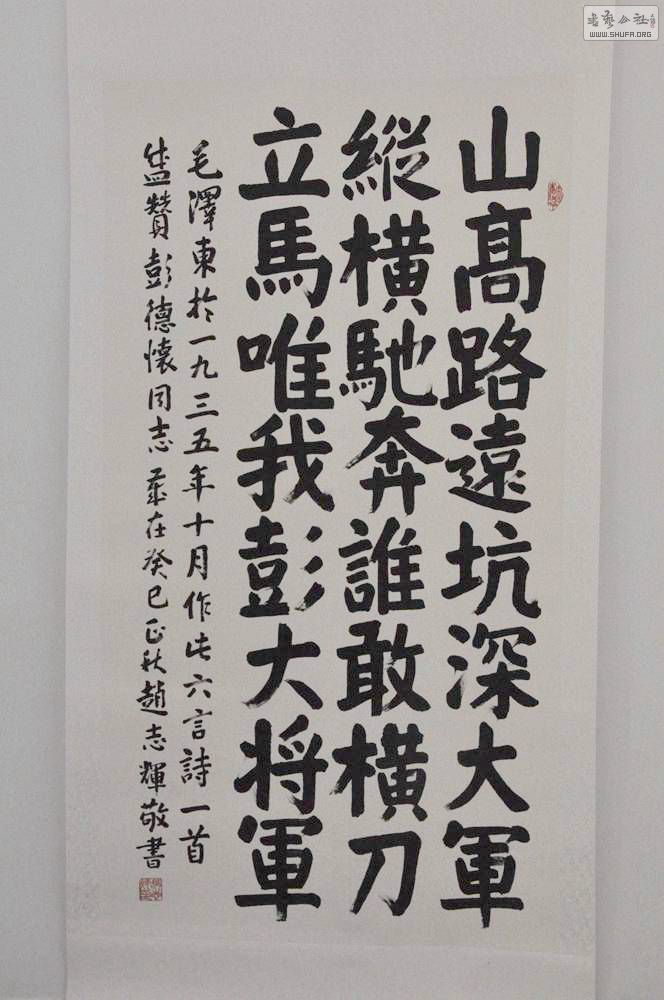 山高路遠坑深大軍
縱橫馳奔誰敢橫刀
立馬唯我彭大将軍
毛澤東於一九三五年十月作此六言詩一首
盛贊彭德懷同志 歲在癸巳正秋趙志輝敬書
書藝公社
WWW.SHUFA.ORG